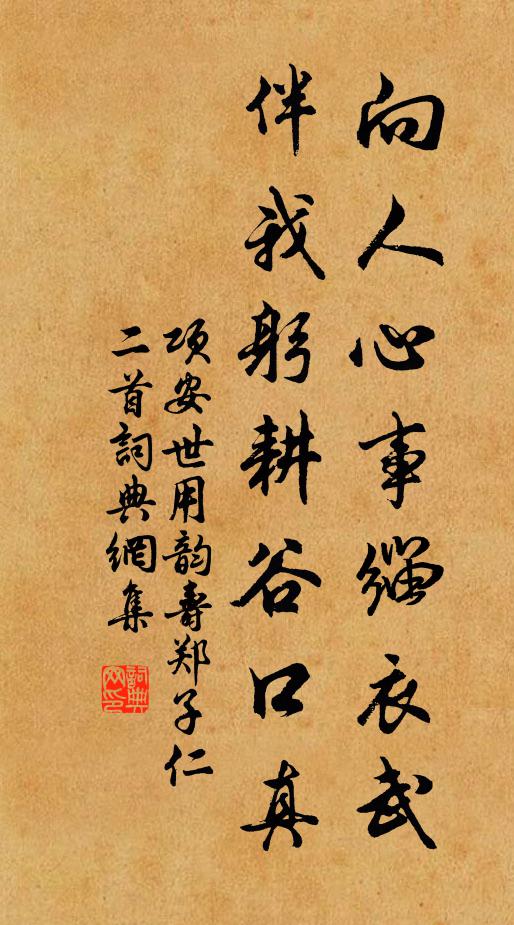 向人心事緇衣武
伴我躬耕谷口真
项安世用韵壽郑子仁
二首詞典網集
詞典网印